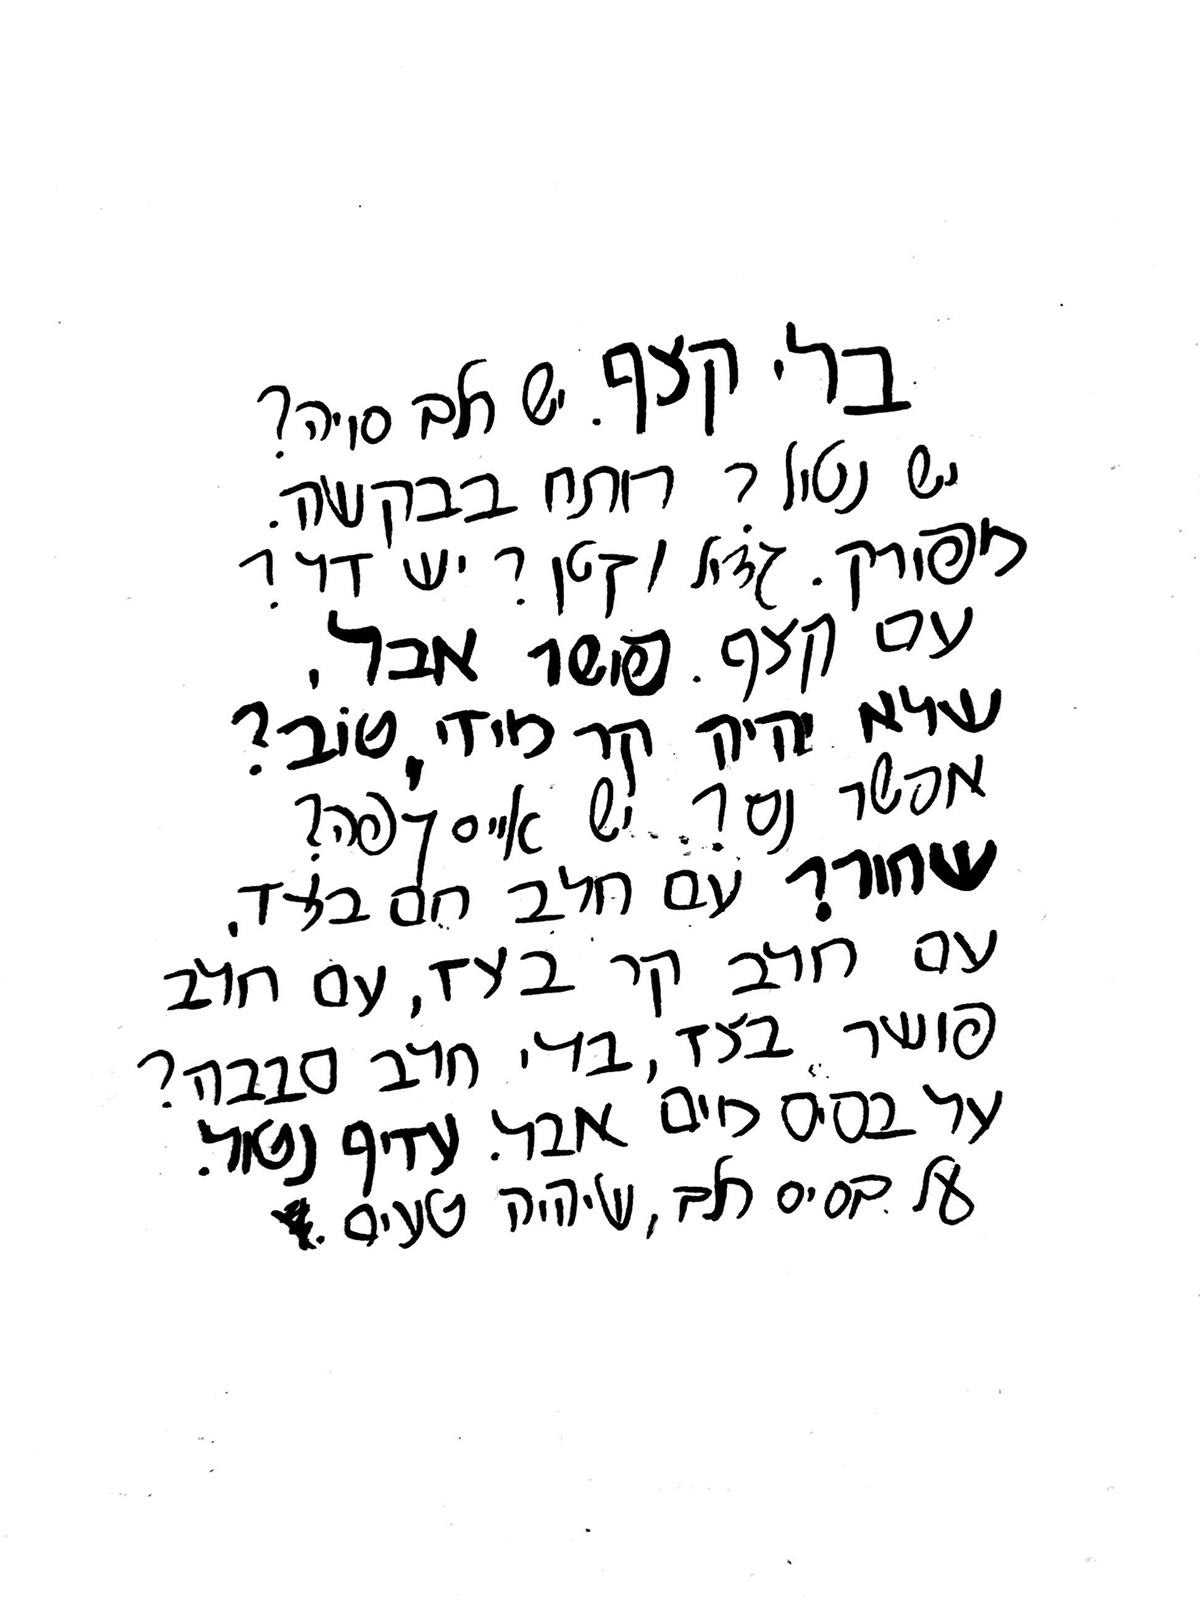 בלי קצף. יש חלב סויה?
יש נטול? רותח בבקשה.
מפורק. גדול / קטן? יש דל?
עם קצף. פושר אבל,
שלא יהיה קר מידי, טוב?
אפשר נס? יש אייס קפה?
שחור? עם חלב חם בצד,
עם חלב קר בצד, עם חלב
פושר בצד, בלי חלב סבבה?
על בסיס מים אבל. עדיף נטול.
על בסיס חלב, שיהיה טעים.